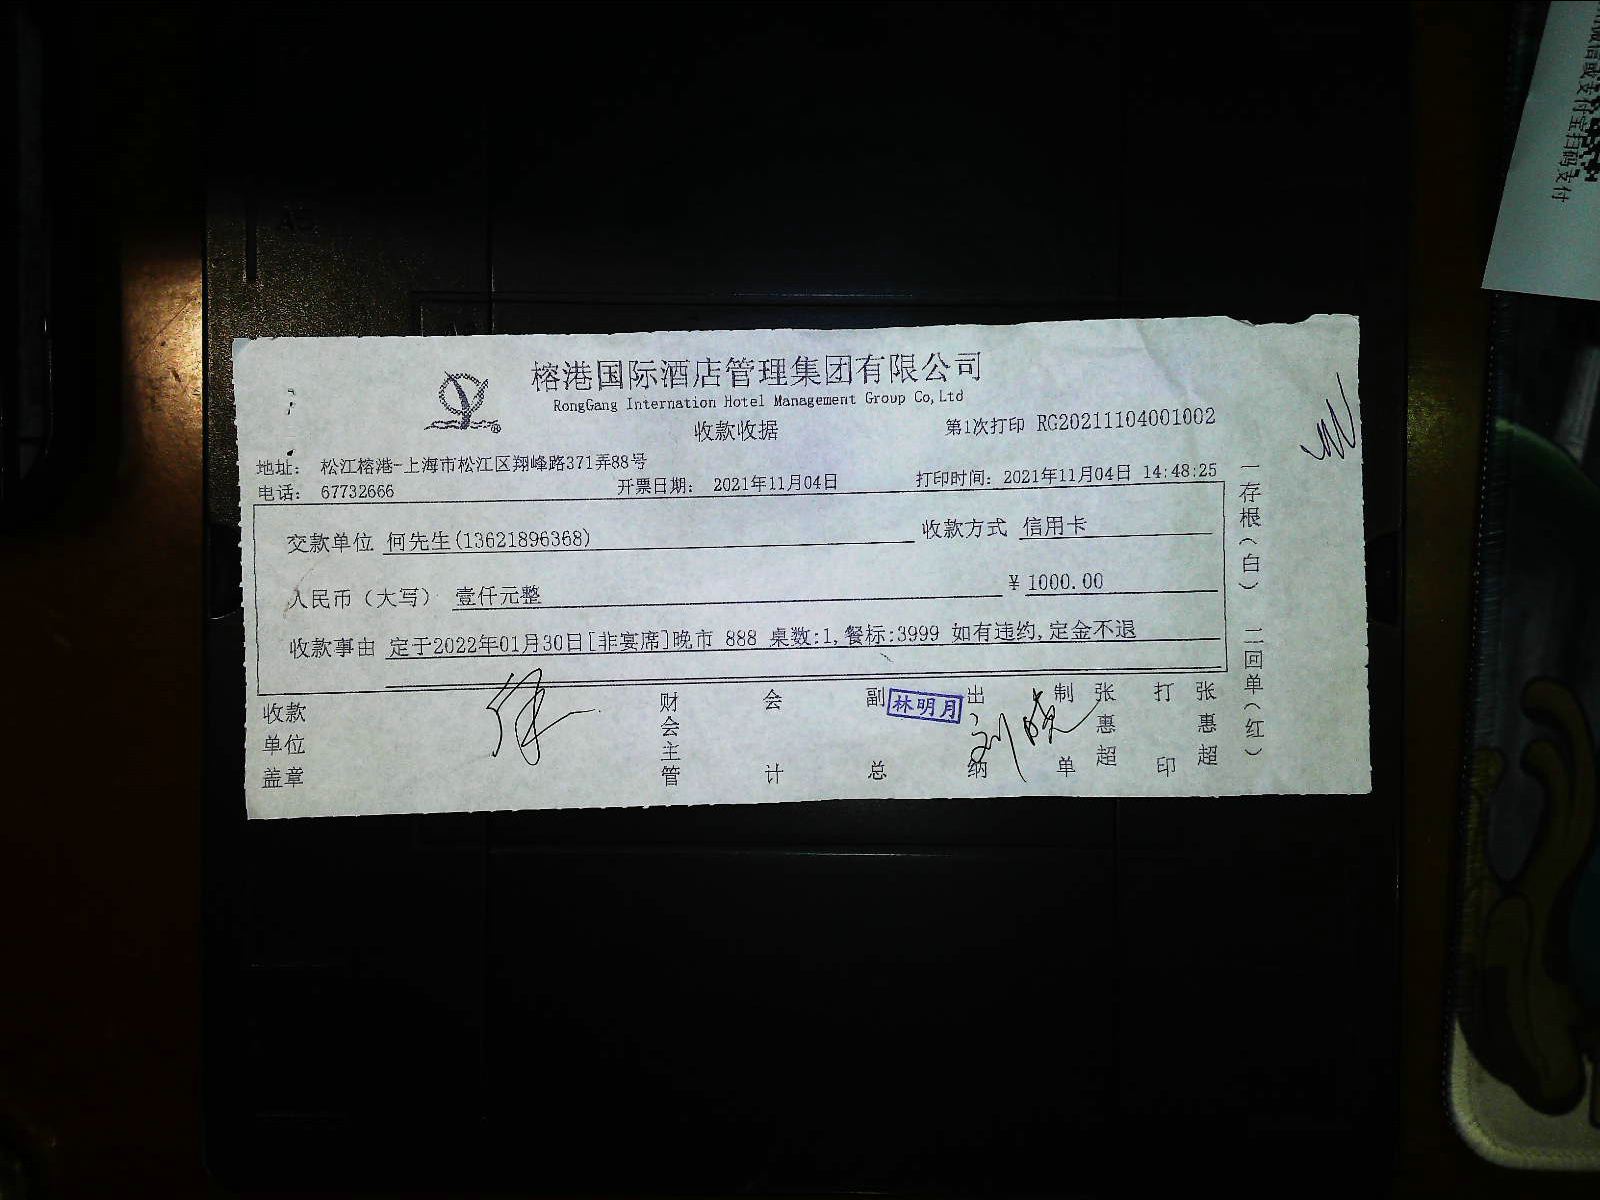 榕港国际酒店管理集团有限公司
RongGang Internation Hotel Management Group Co,Ltd
收款收据
第1次打印 RG20211104001002
地址： 松江榕港-上海市松江区翔峰路371弄88号
电话： 67732666
开票日期： 2021年11月04日
打印时间： 2021年11月04日 14:48:25
交款单位 何先生(13621896368)
收款方式 信用卡
人民币（大写） 壹仟元整
¥ 1000.00
收款事由 定于2022年01月30日[非宴席]晚市 888 桌数:1,餐标:3999 如有违约,定金不退
收款单位盖章
财会主管
会计
副总
林明月
出纳
制单
张惠超
打印
张惠超
一存根（白） 二回单（红）
微信或支付宝扫码支付